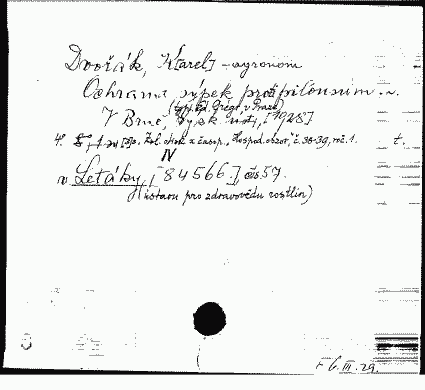 Dvořák, K[arel] - agronom
Ochrana sýpek proti pilousním
(typ. Ed. Grégr v Praze)
V Brně, Výzk. úst., [1928]
4°. Zvl. otisk z časop. „Hospod. obzor", č. 38-39, roč. 1. t.
IV
v Letáky, [84566.], čís 57.
(Ústavu pro zdravovědu rostlin)
F 6. III. 29.